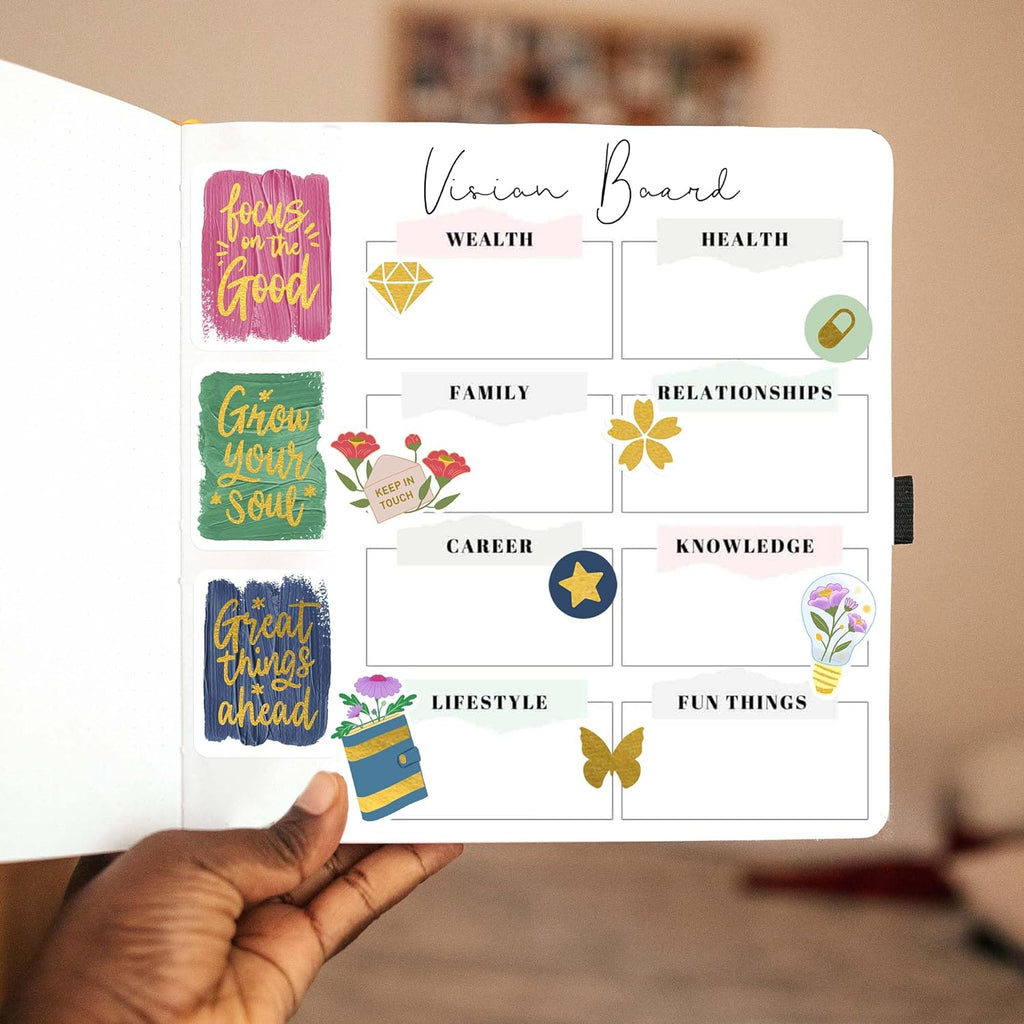 focus
on the
Good
Grow
your
soul
Great
things
ahead
Vision Board
WEALTH
HEALTH
FAMILY
RELATIONSHIPS
KEEP IN
TOUCH
CAREER
KNOWLEDGE
LIFESTYLE
FUN THINGS